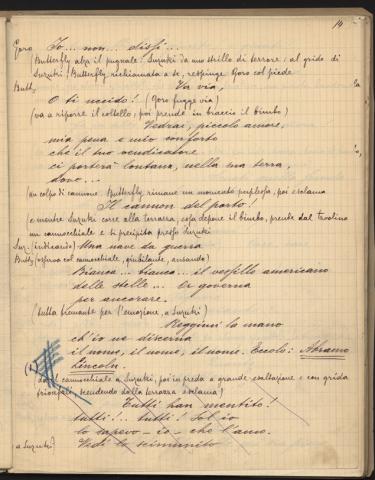 14
Goro Io... non... dissi...
(Butterfly alza il pugnale: Suzuki dà uno strillo di terrore: al grido di
Suzuki, Butterfly, richiamata a se, respinge Goro col piede
Butt. Va via,
O ti uccido! (Goro fugge via)
(va a riporre il coltello, poi prende in braccio il bimbo)
Vedrai, piccolo amore,
mia pena e mio conforto
che il tuo vendicatore
ci porterà lontano, nella sua terra,
dove...
(un colpo di cannone. Butterfly rimane un momento perplessa, poi esclama
Il cannon del porto!
(e mentre Suzuki corre alla terrazza, essa depone il bimbo, prende dal tavolino
un cannocchiale e si precipita presso Suzuki
Suz. (indicando) Una nave da guerra
Butt. (osserva col cannocchiale, giubilante, ansando)
Bianca... bianca... il vessillo americano
delle stelle... Or governa
per ancorare.
(tutta tremante per l'emozione, a Suzuki)
Reggimi la mano
ch'io ne discerna
il nome, il nome, il nome. Eccolo: Abramo
Lincoln.
(dà il cannocchiale a Suzuki, poi in preda a grande esaltazione e con grida
trionfali, scendendo dalla terrazza esclama)
Tutti han mentito!
tutti!.. tutti! Sol io
lo sapevo - io - che l'amo.
a Suzuki) Vedi lo scimunito